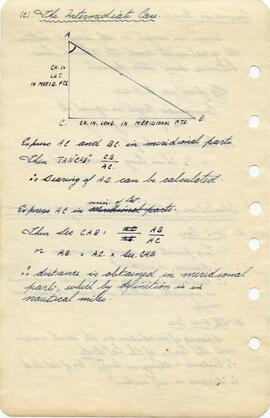 (c). The Intermediate Case.
A
CH. IN
LAT.
IN MERID. PTS.
C CH. IN. LONG. IN MERIDIONAL PTS. B
Express AC and BC. in meridional parts
Then TAN CAB = CB / AC
∴ Bearing of AB can be calculated
mins of lat.
Express AC in meridional parts.
Then Sec CAB: AC / AB AB / AC
or AB. = AC. x Sec. CAB
∴ distance is obtained in meridional
parts, which by definition is in
nautical miles.